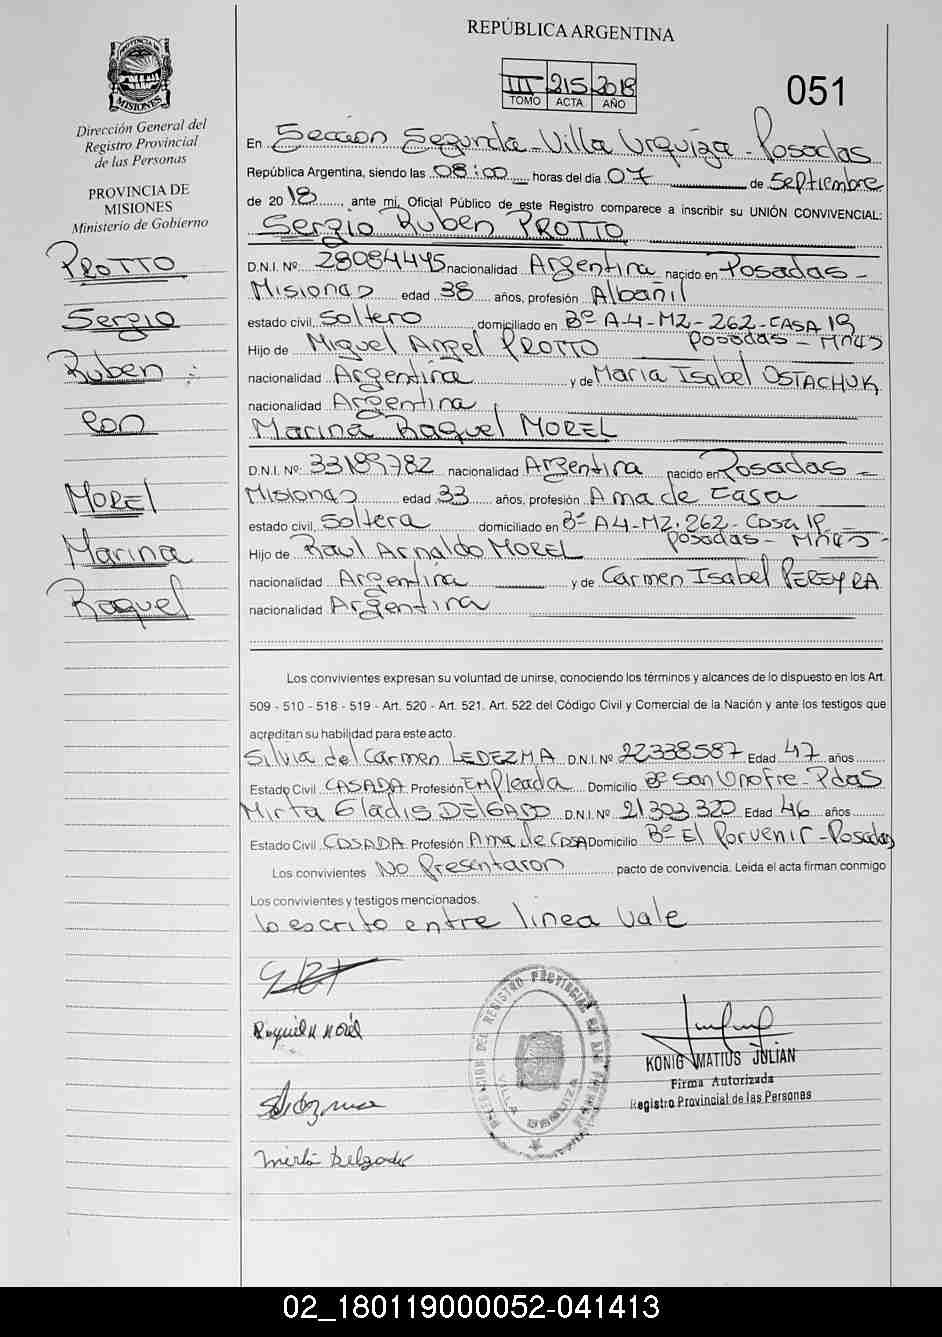 REPÚBLICA ARGENTINA
III 215 2018
TOMO ACTA AÑO
051
PROVINCIA DE
MISIONES
Dirección General del
Registro Provincial
de las Personas
PROVINCIA DE
MISIONES
Ministerio de Gobierno
PROTTO
Sergio
Ruben
con
MOREL
Marina
Raquel
En Sección Segunda - Villa Urquiza - Posadas
República Argentina, siendo las 08:00 horas del día 07 de Septiembre
de 2018, ante mi, Oficial Público de este Registro comparece a inscribir su UNIÓN CONVIVENCIAL:
Sergio Ruben PROTTO
D.N.I. Nº 28084445 nacionalidad Argentina nacido en Posadas -
Misiones edad 38 años, profesión Albañil
estado civil Soltero domiciliado en Bº A4-MZ-262-CASA 19
Posadas - Mnes
Hijo de Miguel Angel PROTTO
nacionalidad Argentina y de Maria Isabel OSTACHUK
nacionalidad Argentina
Marina Raquel MOREL
D.N.I. Nº 33189782 nacionalidad Argentina nacido en Posadas -
Misiones edad 33 años, profesión Ama de Casa
estado civil Soltera domiciliado en Bº A4-MZ-262-Casa 19 -
Posadas - Mnes -
Hijo de Raul Arnaldo MOREL
nacionalidad Argentina y de Carmen Isabel PEREYRA
nacionalidad Argentina
Los convivientes expresan su voluntad de unirse, conociendo los términos y alcances de lo dispuesto en los Art.
509 - 510 - 518 - 519 - Art. 520 - Art. 521. Art. 522 del Código Civil y Comercial de la Nación y ante los testigos que
acreditan su habilidad para este acto.
Silvia del Carmen LEDEZMA D.N.I. Nº 22338587 Edad 47 años
Estado Civil CASADA Profesión Empleada Domicilio Bº San Onofre - Pdas
Mirta Gladis DELGADO D.N.I. Nº 21.303.320 Edad 46 años
Estado Civil CASADA Profesión Ama de Casa Domicilio Bº El Porvenir - Posadas
Los convivientes No Presentaron pacto de convivencia. Leída el acta firman conmigo
Los convivientes y testigos mencionados.
lo escrito entre linea vale
Mirta Delgado
VILLA URQUIZA
KONIG MATIUS JULIAN
Firma Autorizada
Registro Provincial de las Personas
02_180119000052-041413